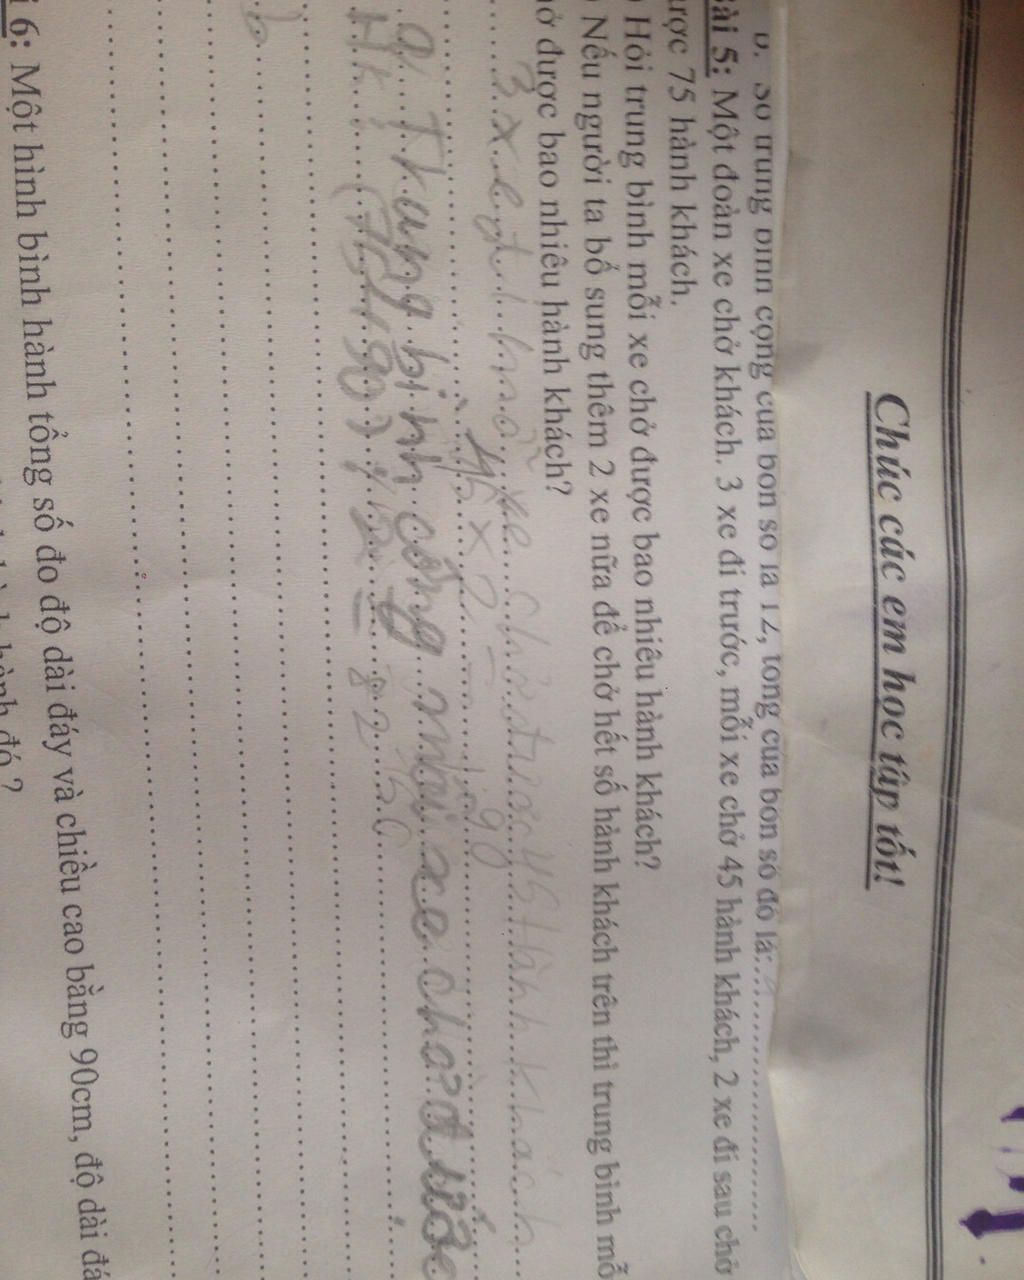 Chúc các em học tập tốt!
b. Số trung bình cộng của bốn số là 12, tổng của bốn số đó là:
ài 5: Một đoàn xe chở khách. 3 xe đi trước, mỗi xe chở 45 hành khách, 2 xe đi sau chở
ược 75 hành khách.
) Hỏi trung bình mỗi xe chở được bao nhiêu hành khách?
) Nếu người ta bổ sung thêm 2 xe nữa để chở hết số hành khách trên thì trung bình mỗ
hở được bao nhiêu hành khách?
3 xe đi mỗi xe chở được 45 hành khách
45 x 2 =
a, Trung bình cộng mỗi xe chở được
b
i 6: Một hình bình hành tổng số đo độ dài đáy và chiều cao bằng 90cm, độ dài đá
hành đó?